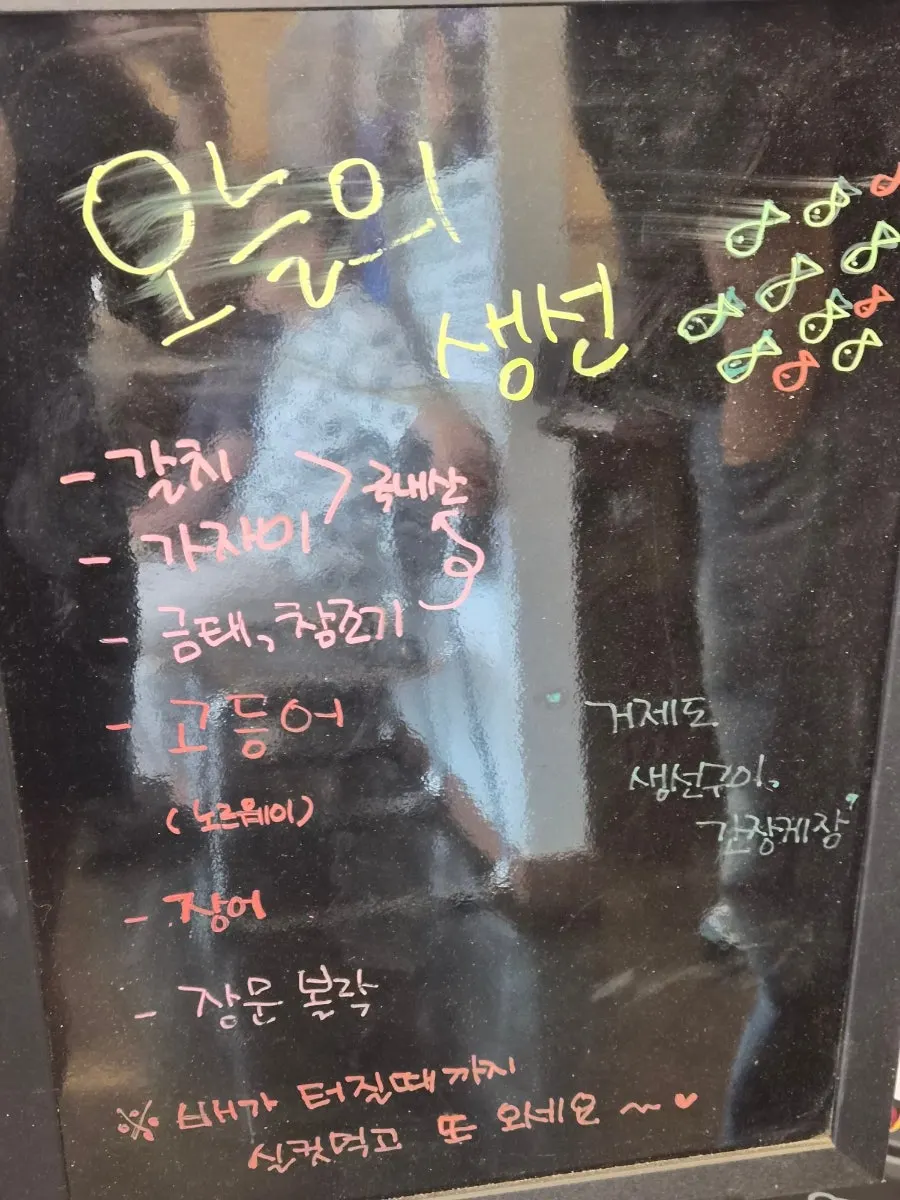 오늘의
생선
- 갈치
> 국내산
- 가자미
- 금태, 참조기
- 고등어
(노르웨이)
- 장어
- 장문 볼락
거제도
생선구이.
간장게장
※ 배가 터질때까지
실컷먹고 또 오세요~♥